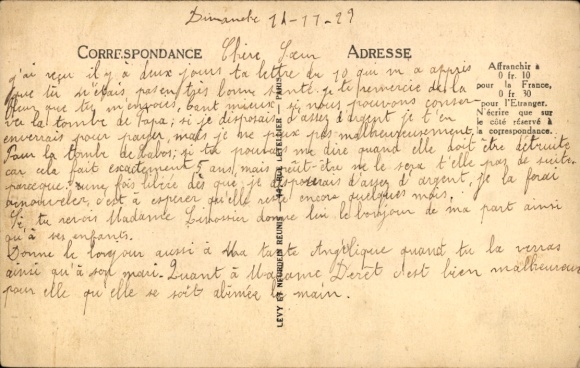 Dimanche 11-11-29
CORRESPONDANCE Chère Sœur ADRESSE
j'ai reçu il y a deux jours ta lettre du 10 qui m'a appris
que tu n'étais pas en très bonne santé. je te remercie de la
fleur que tu m'envoies, tant mieux si nous pouvons conser-
ver la tombe de Papa; si je disposais d'assez d'argent je t'en
enverrais pour payer, mais je ne peux pas malheureusement.
Pour la tombe de si tu pouvais me dire quand elle doit être détruite
car cela fait exactement 5 ans, mais peut-être ne le sera t'elle pas de suite,
parceque une fois libéré dès que je disposerais d'assez d'argent, je la ferai
renouveler, c'est à espérer qu'elle reste encore quelques mois.
Si tu revois Madame donne lui le bonjour de ma part ainsi
qu'à ses enfants.
Donne le bonjour aussi à Ma tante Angélique quand tu la verras
ainsi qu'à son mari. Quant à Madame Deret c'est bien malheureux
pour elle qu'elle se soit abîmée la main.
Affranchir à
0 fr. 10
pour la France,
0 fr. 30
pour l'Etranger.
N'écrire que sur
le côté réservé à
la correspondance.
LÉVY ET NEURDEIN RÉUNIS, 44, RUE LETELLIER - PARIS